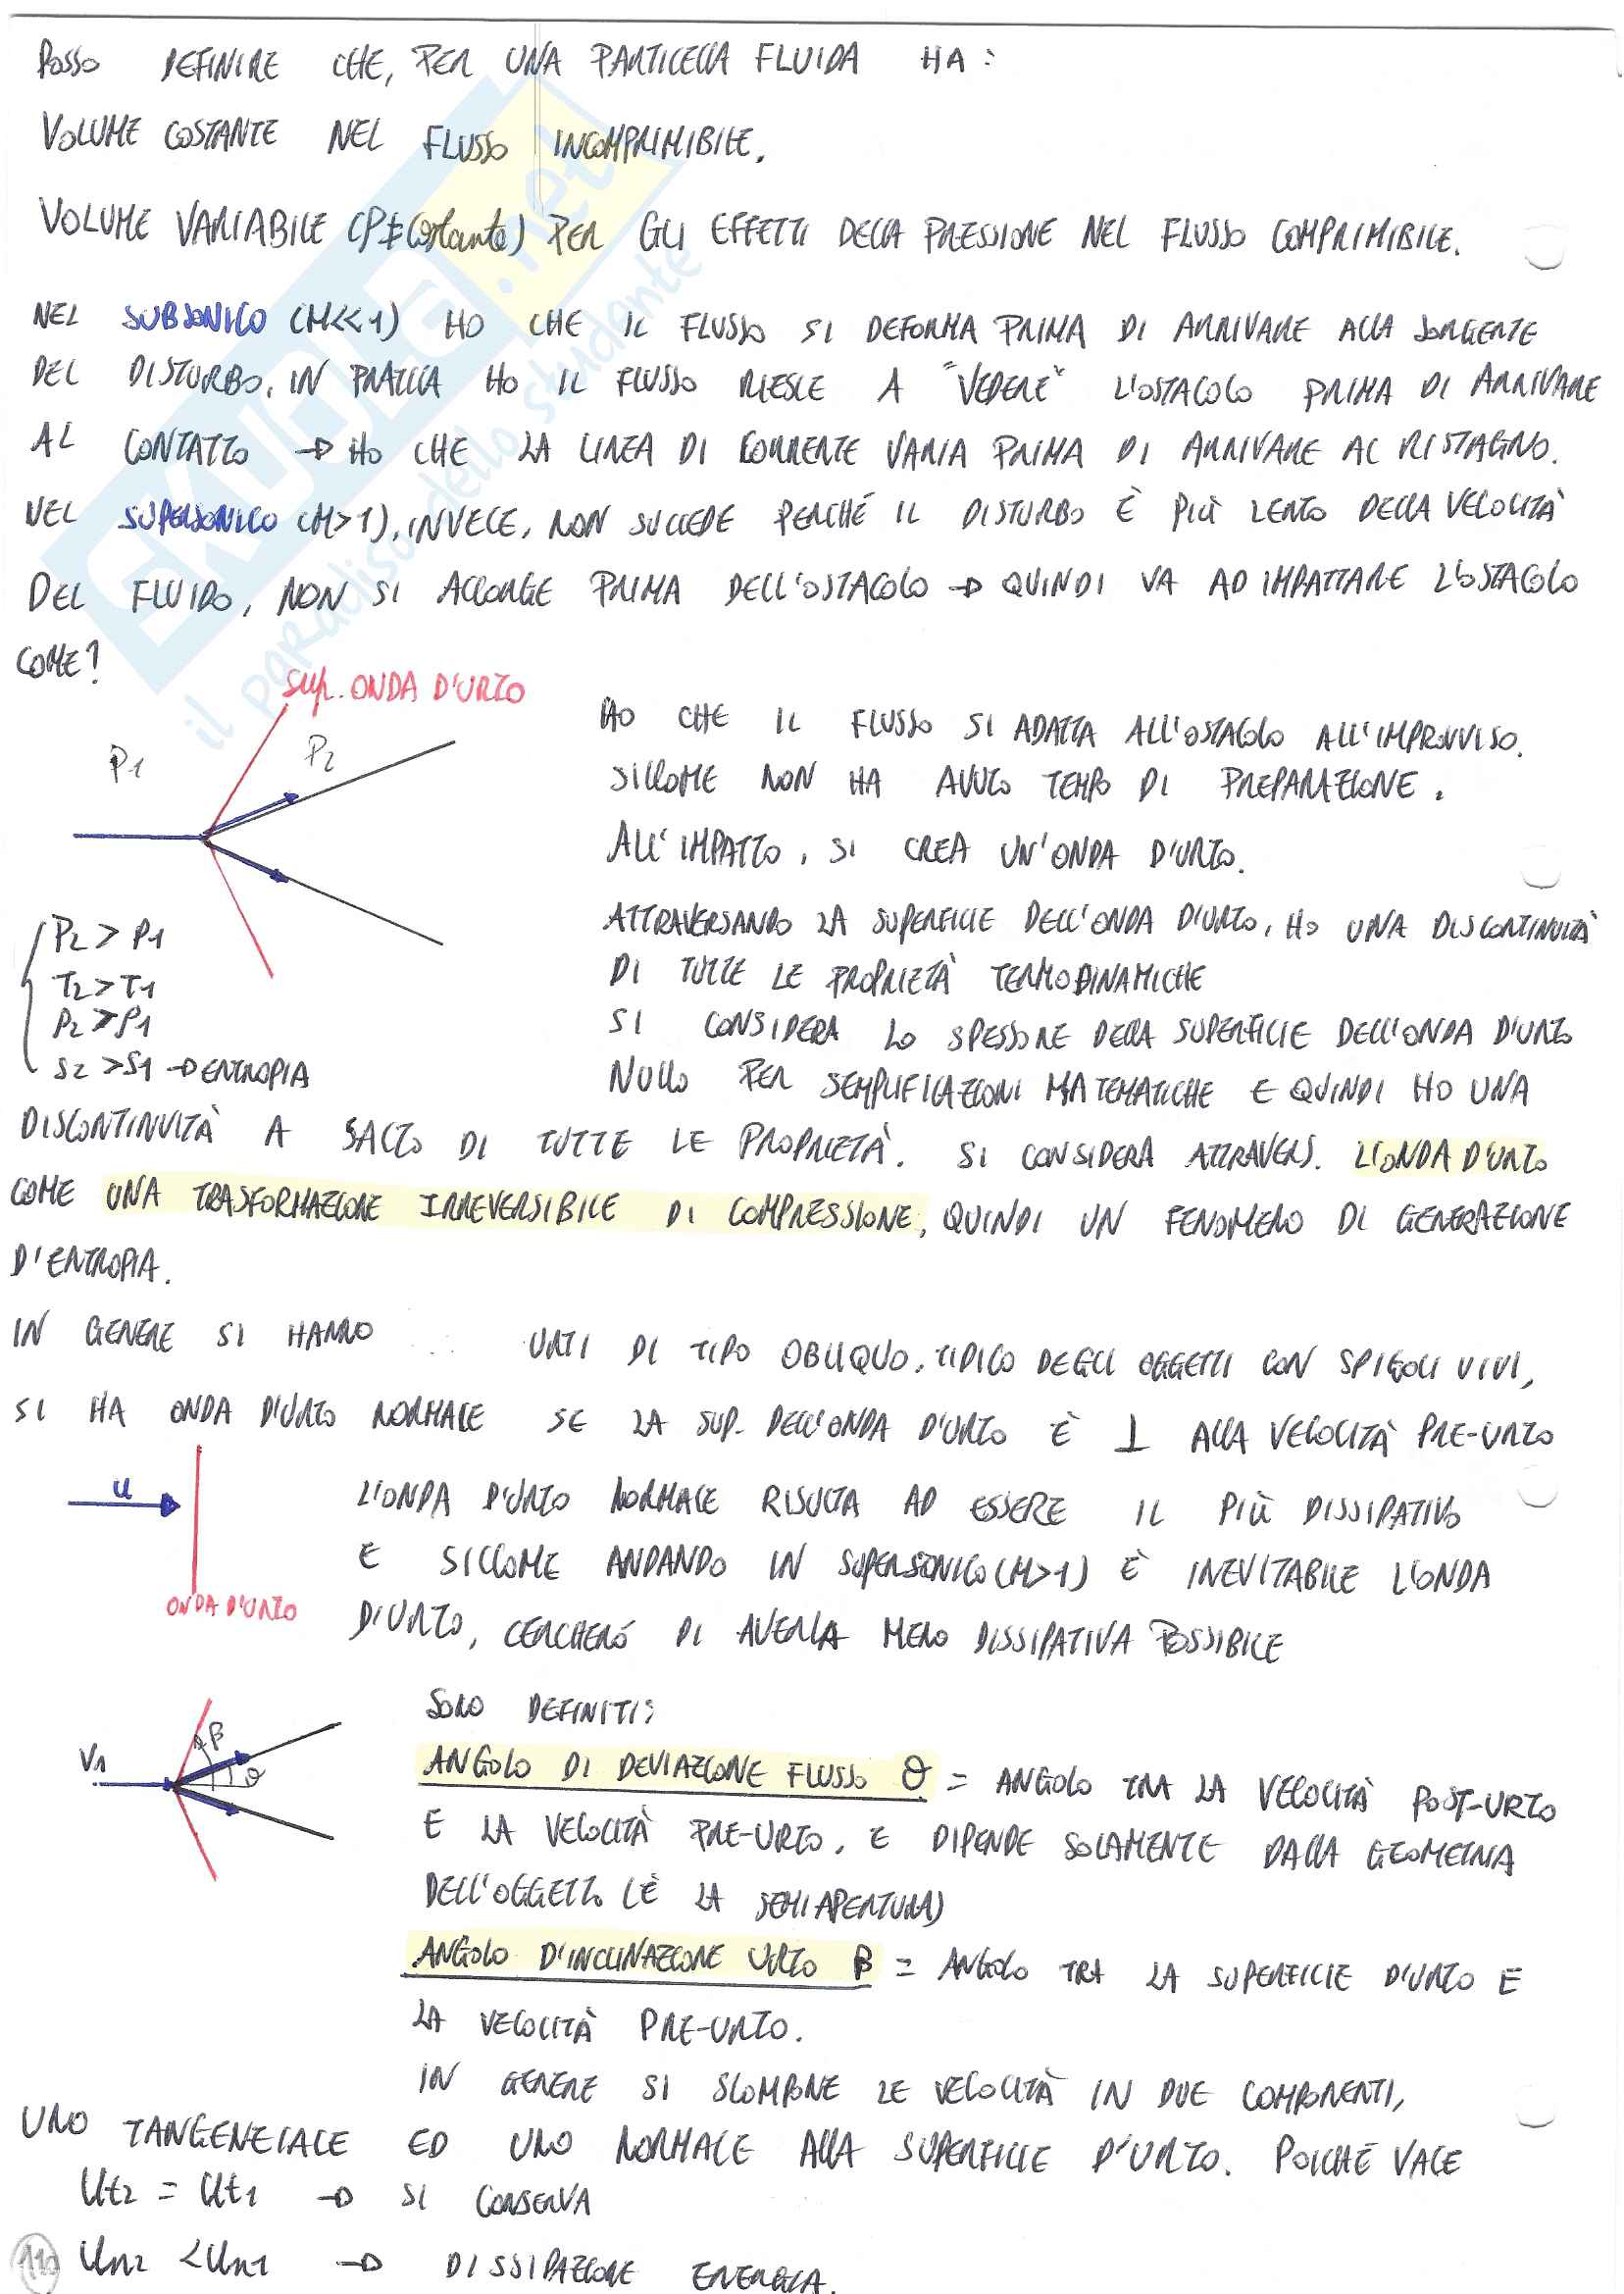 POSSO DEFINIRE CHE, PER UNA PARTICELLA FLUIDA HA:
VOLUME COSTANTE NEL FLUSSO INCOMPRIMIBILE.
VOLUME VARIABILE (ρ≠Costante) PER GLI EFFETTI DELLA PRESSIONE NEL FLUSSO COMPRIMIBILE.
NEL SUBSONICO (M<<1) HO CHE IL FLUSSO SI DEFORMA PRIMA DI ARRIVARE ALLA SORGENTE
DEL DISTURBO. IN PRATICA HO IL FLUSSO RIESCE A "VEDERE" L'OSTACOLO PRIMA DI ARRIVARE
AL CONTATTO → HO CHE LA LINEA DI CORRENTE VARIA PRIMA DI ARRIVARE AL RISTAGNO.
NEL SUPERSONICO (M>1), INVECE, NON SUCCEDE PERCHÉ IL DISTURBO È PIÙ LENTO DELLA VELOCITÀ
DEL FLUIDO, NON SI ACCORGE PRIMA DELL'OSTACOLO → QUINDI VA AD IMPATTARE L'OSTACOLO
COME?
SUP. ONDA D'URTO
P1
P2
HO CHE IL FLUSSO SI ADATTA ALL'OSTACOLO ALL'IMPROVVISO.
SICCOME NON HA AVUTO TEMPO DI PREPARAZIONE.
ALL'IMPATTO, SI CREA UN'ONDA D'URTO.
ATTRAVERSANDO LA SUPERFICIE DELL'ONDA D'URTO, HO UNA DISCONTINUITÀ
DI TUTTE LE PROPRIETÀ TERMODINAMICHE
SI CONSIDERA LO SPESSORE DELLA SUPERFICIE DELL'ONDA D'URTO
NULLO PER SEMPLIFICAZIONI MATEMATICHE E QUINDI HO UNA
P2 > P1
T2 > T1
ρ2 > ρ1
S2 > S1 → ENTROPIA
DISCONTINUITÀ A SALTO DI TUTTE LE PROPRIETÀ. SI CONSIDERA ATTRAVERS. L'ONDA D'URTO
COME UNA TRASFORMAZIONE IRREVERSIBILE DI COMPRESSIONE, QUINDI UN FENOMENO DI GENERAZIONE
D'ENTROPIA.
IN GENERE SI HANNO URTI DI TIPO OBLIQUO, TIPICO DEGLI OGGETTI CON SPIGOLI VIVI,
SI HA ONDA D'URTO NORMALE SE LA SUP. DELL'ONDA D'URTO È ⊥ ALLA VELOCITÀ PRE-URTO
u
ONDA D'URTO
L'ONDA D'URTO NORMALE RISULTA AD ESSERE IL PIÙ DISSIPATIVO
E SICCOME ANDANDO IN SUPERSONICO (M>1) È INEVITABILE L'ONDA
D'URTO, CERCHERÓ DI AVERLA MENO DISSIPATIVA POSSIBILE
V1
β
θ
SONO DEFINITI:
ANGOLO DI DEVIAZIONE FLUSSO θ = ANGOLO TRA LA VELOCITÀ POST-URTO
E LA VELOCITÀ PRE-URTO, E DIPENDE SOLAMENTE DALLA GEOMETRIA
DELL'OGGETTO (È LA SEMIAPERTURA)
ANGOLO D'INCLINAZIONE URTO β = ANGOLO TRA LA SUPERFICIE D'URTO E
LA VELOCITÀ PRE-URTO.
IN GENERE SI SCOMPONE LE VELOCITÀ IN DUE COMPONENTI,
UNO TANGENZIALE ED UNO NORMALE ALLA SUPERFICIE D'URTO. POICHÉ VALE
Ut2 = Ut1 → SI CONSERVA
Un2 < Un1 → DISSIPAZIONE ENERGIA.
SKUOLA.net
il paradiso dello studente